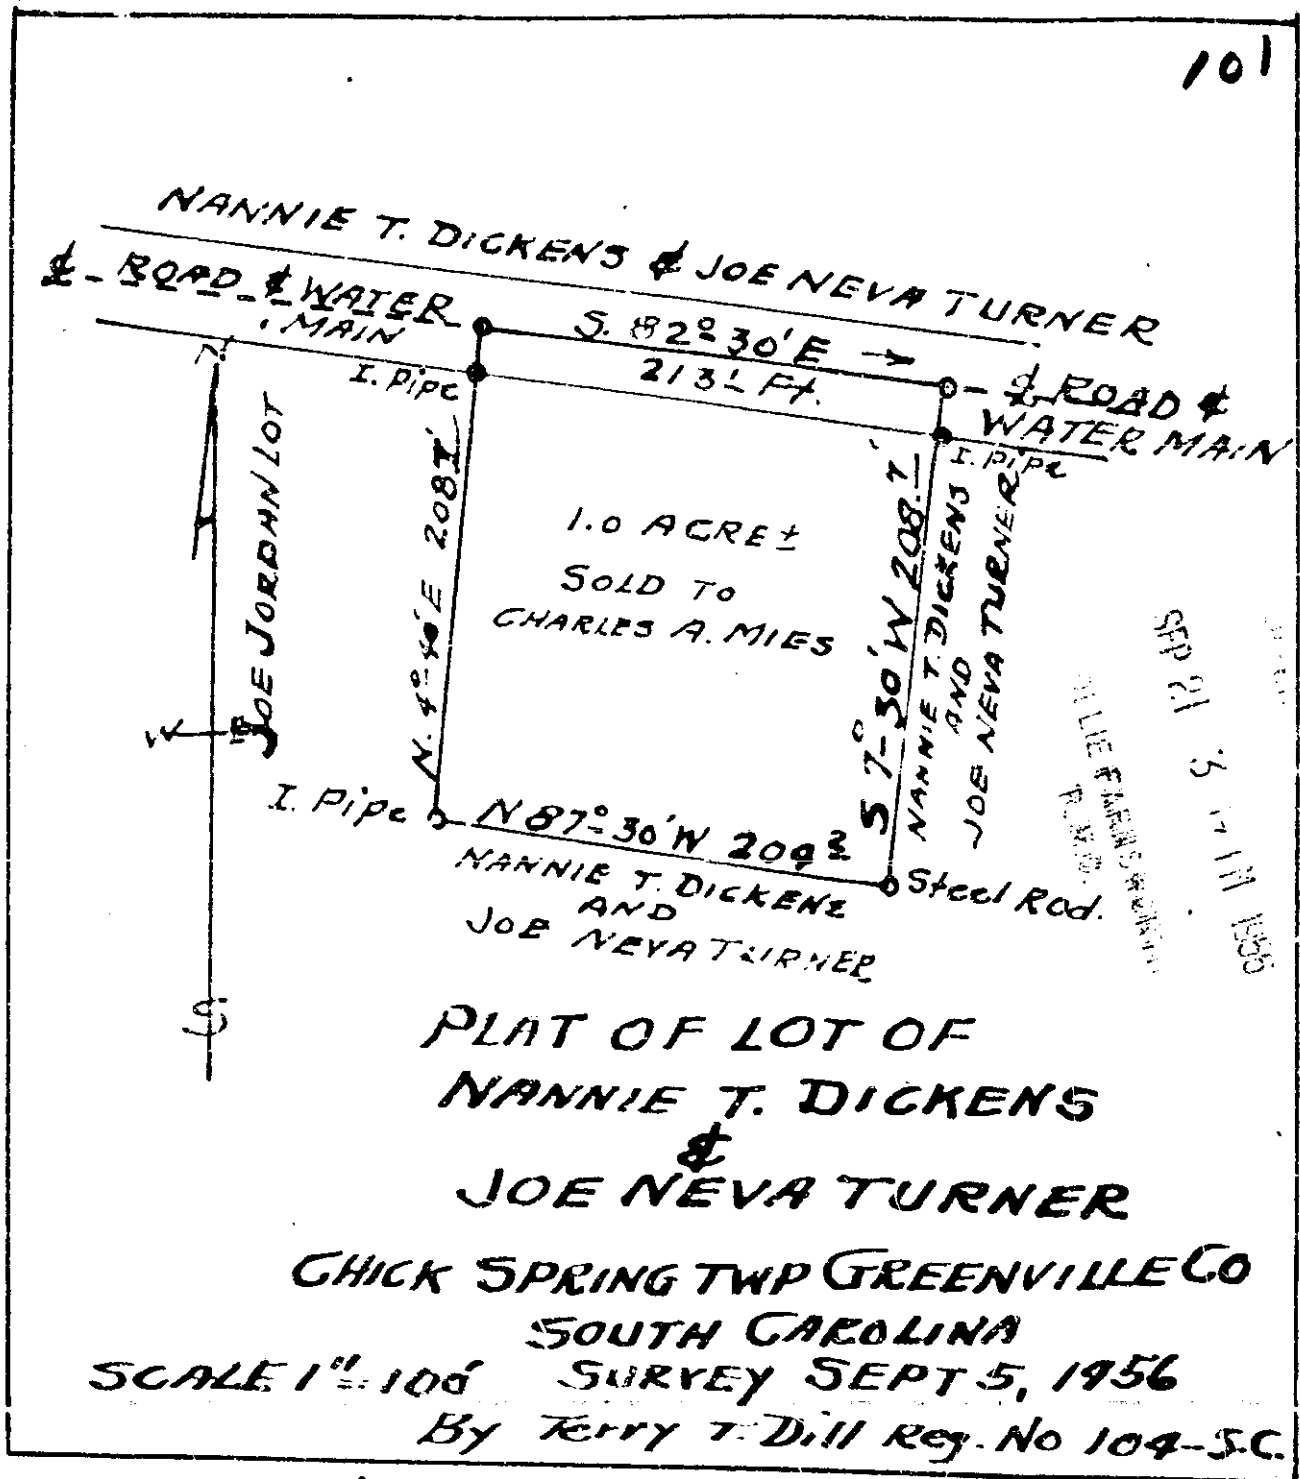 101
NANNIE T. DICKENS & JOE NEVA TURNER
℄ - ROAD & WATER
MAIN
S. 82°-30' E →
213' Ft.
℄ ROAD &
WATER MAIN
I. Pipe
I. Pipe
N.
JOE JORDAN LOT
W
S
N. 4°-40' E 208.7'
1.0 ACRE ±
SOLD TO
CHARLES A. MIES
S 7°-30' W 208.7'
NANNIE T. DICKENS
AND
JOE NEVA TURNER
I. Pipe
N 87°-30' W
Steel Rod.
NANNIE T. DICKENS
AND
JOE NEVA TURNER
SEP 21
1956
R.M.C.
PLAT OF LOT OF
NANNIE T. DICKENS
&
JOE NEVA TURNER
CHICK SPRING TWP GREENVILLE CO
SOUTH CAROLINA
SCALE 1" = 100' SURVEY SEPT 5, 1956
By Terry T. Dill Reg. No 104-S.C.